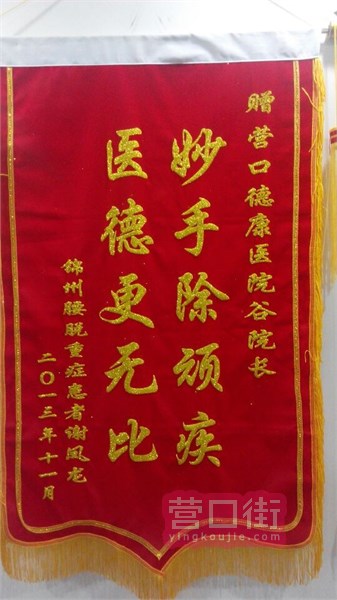 赠营口德康医院谷院长
妙手除顽疾
医德更无比
锦州腰脱重症患者谢凤龙
二〇一三年十一月
营口街
yingkoujie.com